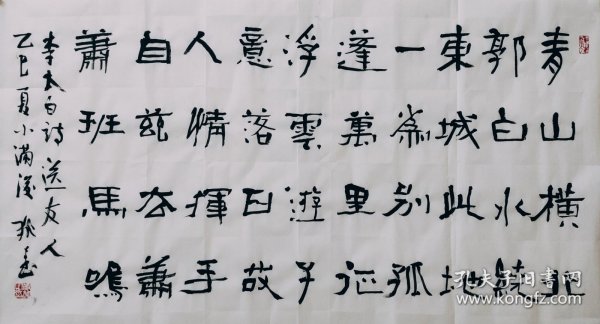 青山橫北
郭白水繞
東城此地
一為別孤
蓬萬里征
浮雲遊子
意落日故
人情揮手
自茲去蕭
蕭班馬鳴
李太白詩送友人
乙巳夏小滿後
孔夫子旧书网
www.kongfz.com